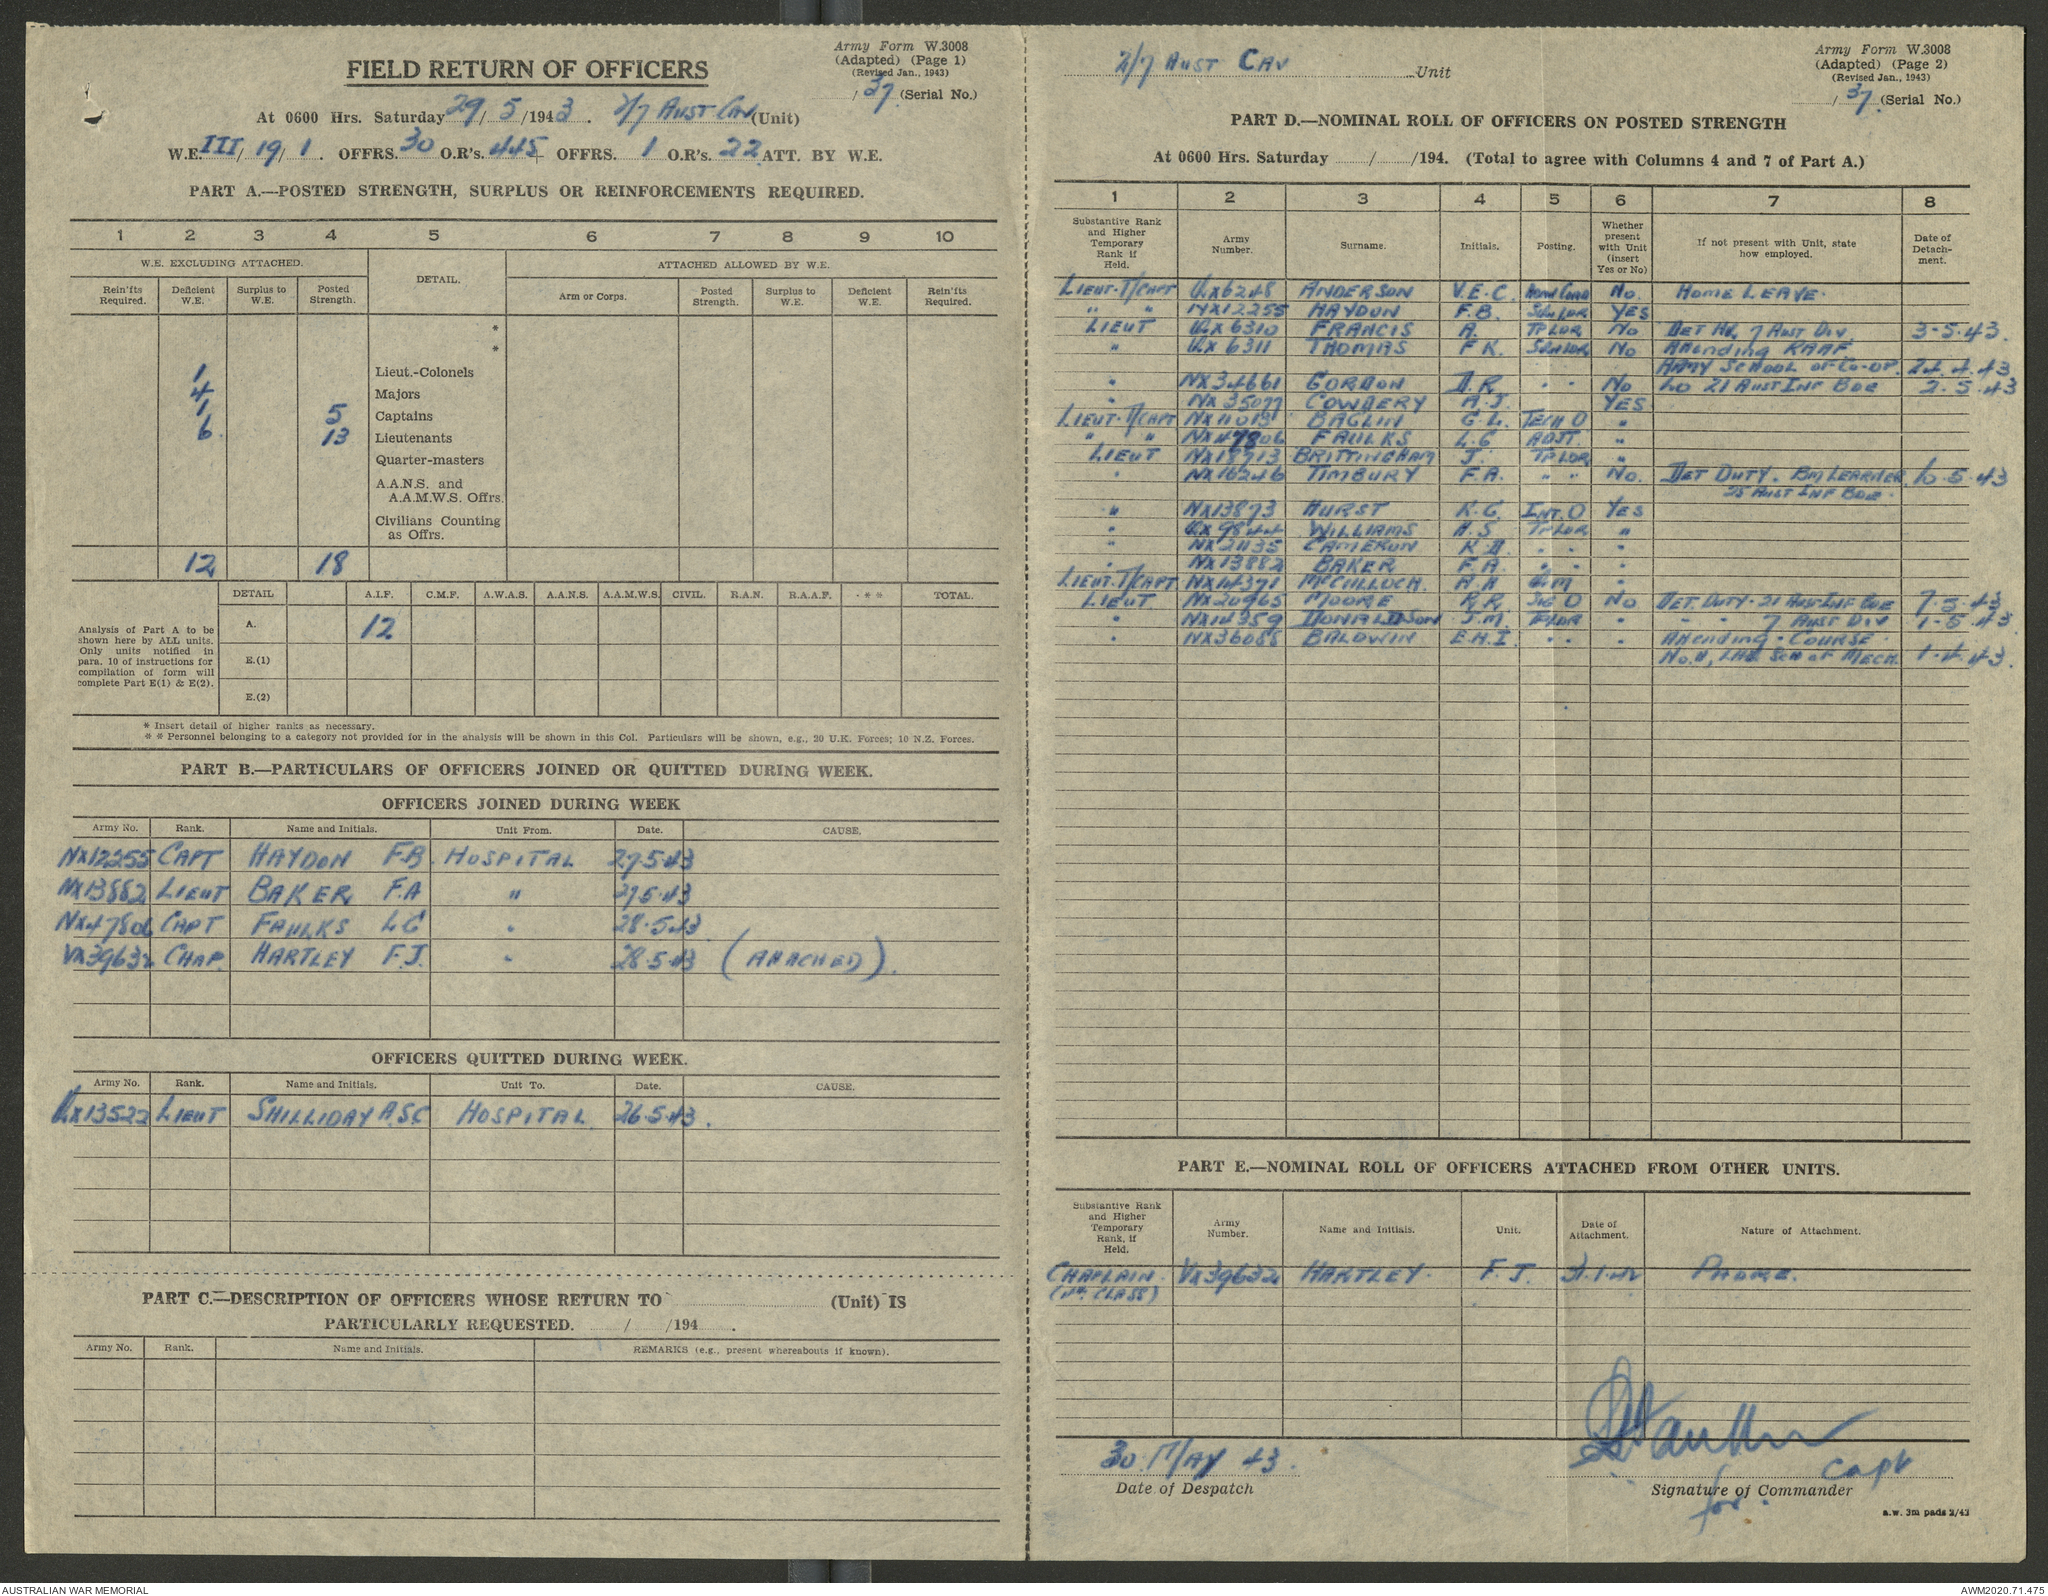 Army Form W.3008
(Adapted) (Page 1)
(Revised Jan., 1943)
/ 37 (Serial No.)
FIELD RETURN OF OFFICERS
At 0600 Hrs. Saturday 29/5/1943. 2/7 AUST CAV (Unit)
W.E. III/19/1. OFFRS. 30 O.R's. 445 OFFRS. 1 O.R's. 22 ATT. BY W.E.
PART A.—POSTED STRENGTH, SURPLUS OR REINFORCEMENTS REQUIRED.
1 2 3 4 5 6 7 8 9 10
W.E. EXCLUDING ATTACHED. DETAIL. ATTACHED ALLOWED BY W.E.
Rein'fts Required. Deficient W.E. Surplus to W.E. Posted Strength. Arm or Corps. Posted Strength. Surplus to W.E. Deficient W.E. Rein'fts Required.
*
*
1 Lieut.-Colonels
4 Majors
1 5 Captains
6 13 Lieutenants
Quarter-masters
A.A.N.S. and
A.A.M.W.S. Offrs.
Civilians Counting
as Offrs.
12 18
DETAIL A.I.F. C.M.F. A.W.A.S. A.A.N.S. A.A.M.W.S. CIVIL. R.A.N. R.A.A.F. * * TOTAL.
Analysis of Part A to be shown here by ALL units. Only units notified in para. 10 of instructions for compilation of form will complete Part E(1) & E(2).
A. 12
E.(1)
E.(2)
* Insert detail of higher ranks as necessary.
* * Personnel belonging to a category not provided for in the analysis will be shown in this Col. Particulars will be shown, e.g., 20 U.K. Forces; 10 N.Z. Forces.
PART B.—PARTICULARS OF OFFICERS JOINED OR QUITTED DURING WEEK.
OFFICERS JOINED DURING WEEK
Army No. Rank. Name and Initials. Unit From. Date. CAUSE.
NX12255 CAPT HAYDON F.B. HOSPITAL 27.5.43
NX13882 LIEUT BAKER F.A " 27.5.43
NX47806 CAPT FAULKS L G " 28.5.43
VX39632 CHAP. HARTLEY F.J. " 28.5.43 (ATTACHED).
OFFICERS QUITTED DURING WEEK.
Army No. Rank. Name and Initials. Unit To. Date. CAUSE.
QX13522 LIEUT SHILLIDAY A.S.C HOSPITAL 26.5.43.
PART C.—DESCRIPTION OF OFFICERS WHOSE RETURN TO (Unit) IS
PARTICULARLY REQUESTED. / /194 .
Army No. Rank. Name and Initials. REMARKS (e.g., present whereabouts if known).
2/7 AUST CAV Unit
Army Form W.3008
(Adapted) (Page 2)
(Revised Jan., 1943)
/ 37 (Serial No.)
PART D.—NOMINAL ROLL OF OFFICERS ON POSTED STRENGTH
At 0600 Hrs. Saturday / /194. (Total to agree with Columns 4 and 7 of Part A.)
1 2 3 4 5 6 7 8
Substantive Rank and Higher Temporary Rank if Held. Army Number. Surname. Initials. Posting. Whether present with Unit (insert Yes or No) If not present with Unit, state how employed. Date of Detachment.
LIEUT. T/CAPT QX6248 ANDERSON V.E.C. No. HOME LEAVE.
" " NX12255 HAYDON F.B. SQN LDR YES
LIEUT QX6310 FRANCIS A. TP LDR No DET HQ 7 AUST DIV. 3.5.43.
" QX6311 THOMAS F K. No Attending RAAF
ARMY SCHOOL OF CO-OP. 24.4.43
" NX34661 GORDON D.R. " " No LO 21 AUST INF BDE 2.5.43
" NX35077 COWDERY A.J. YES
LIEUT. T/CAPT NX11013 BAGLIN G.L. TECH O "
" " NX47806 FAULKS L.G ADJT. "
LIEUT NX17713 BRITTINGHAM J. TP LDR "
" NX16246 TIMBURY F.A. " " No. DET DUTY. BM LEARNER 10.5.43
25 AUST INF BDE.
" NX13873 HURST K.G. INT. O YES
" QX9844 WILLIAMS H.S TP LDR "
" NX21135 CAMERON K D. " " "
" NX13882 BAKER F.A. " " "
LIEUT. T/CAPT NX14371 McCULLOCH. A.A Q.M "
LIEUT NX20965 MOORE R.R. SIG O No DET. DUTY. 21 AUST INF BDE 7.5.43
" NX14359 DONALDSON J.M. TP LDR " " " 7 AUST DIV 1.5.43.
" NX36088 BALDWIN E.H.I. " " " Attending COURSE
SCH OF MECH. 1.4.43.
PART E.—NOMINAL ROLL OF OFFICERS ATTACHED FROM OTHER UNITS.
Substantive Rank and Higher Temporary Rank, if Held. Army Number. Name and Initials. Unit. Date of Attachment. Nature of Attachment.
CHAPLAIN. VX39632 HARTLEY. F.J. 31.1.42 PADRE.
(4TH CLASS)
30 MAY 43.
Date of Despatch
Capt
Signature of Commander
for.
a.w. 3m pads 2/43
AUSTRALIAN WAR MEMORIAL
AWM2020.71.475